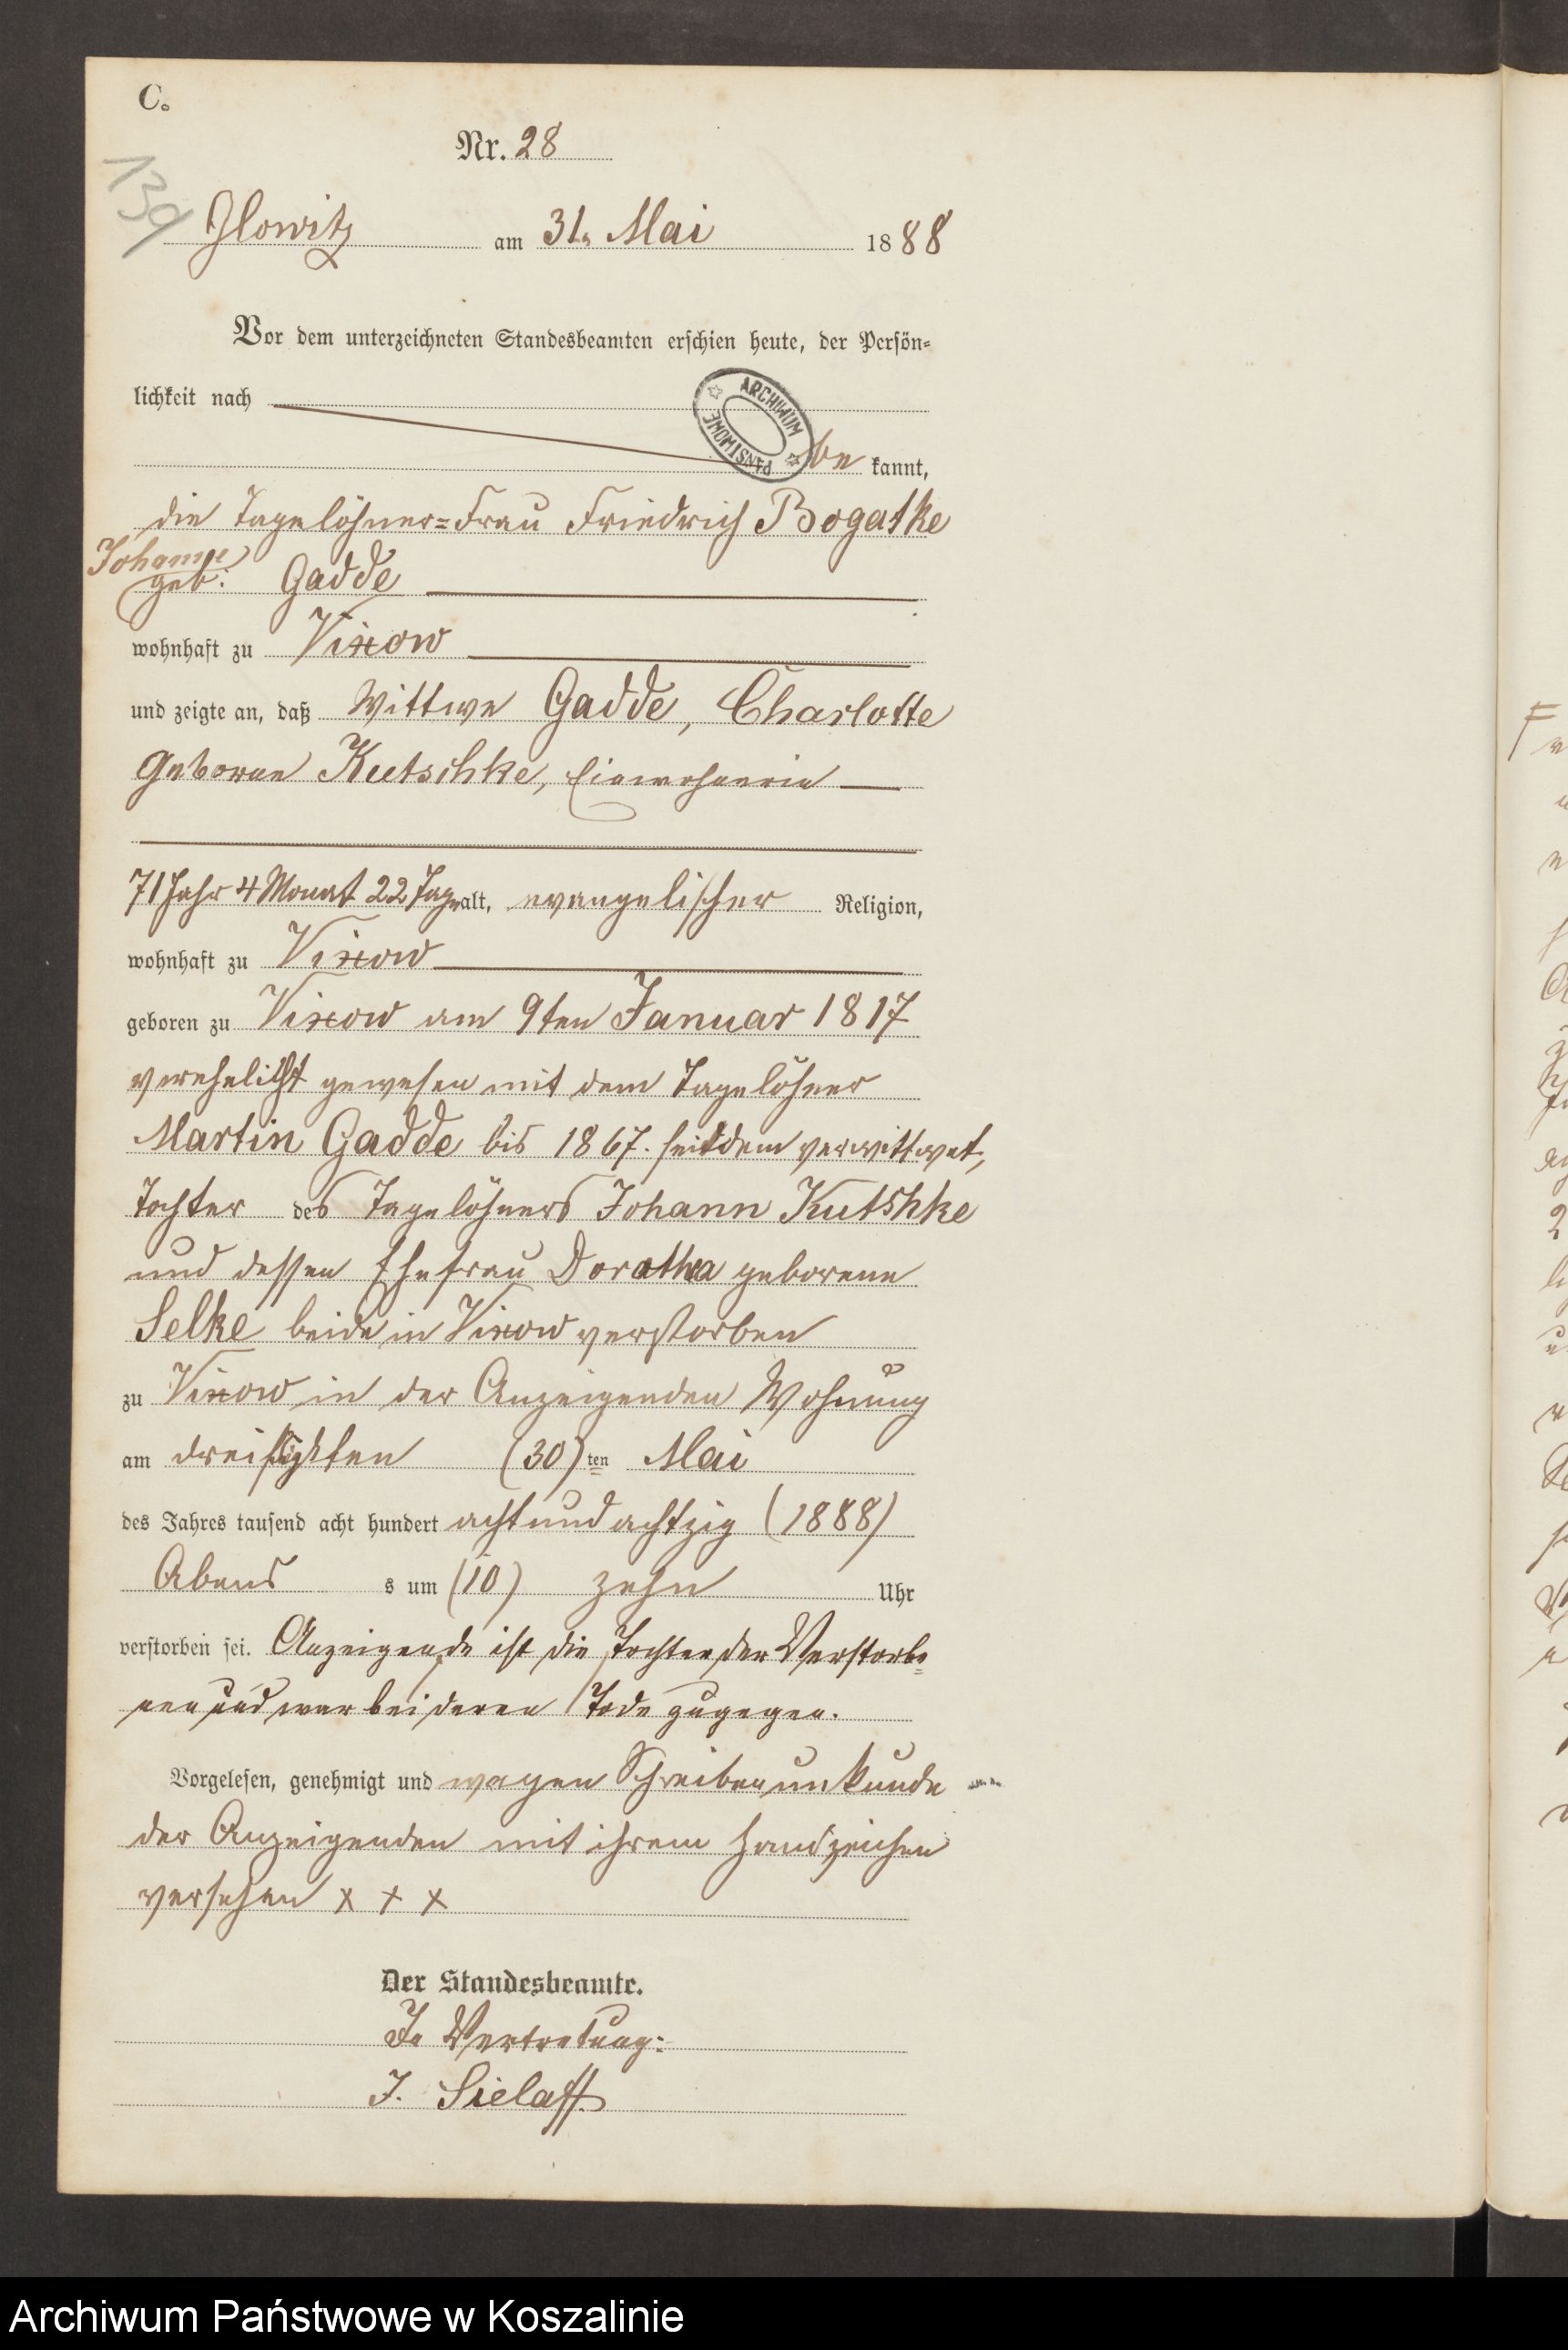 C.
Nr. 28
139
Glowitz am 31. Mai 1888
Vor dem unterzeichneten Standesbeamten erschien heute, der Persön-
lichkeit nach
ARCHIWUM PAŃSTWOWE
be kannt,
die Tagelöhner=Frau Friedrich Bogatke
Johanne
geb: Gadde
wohnhaft zu Vixow
und zeigte an, daß Wittwe Gadde, Charlotte
Geborne Kutschke, Einwohnerin
71 Jahr 4 Monat 22 Tage alt, evangelischer Religion,
wohnhaft zu Vixow
geboren zu Vixow am 9ten Januar 1817
verehelicht gewesen mit dem Tagelöhner
Martin Gadde bis 1867. seitdem verwittwet,
Tochter des Tagelöhners Johann Kutshke
und dessen Ehefrau Dorathea geborene
Selke beide in Vixow verstorben
zu Vixow in der Anzeigenden Wohnung
am dreißigsten (30)ten Mai
des Jahres tausend acht hundert achtundachtzig (1888)
Abend s um (10) zehn Uhr
verstorben sei. Anzeigende ist die Tochter der Verstorbe=
nen und war bei deren Tode zugegen.
Vorgelesen, genehmigt und wegen Schreibenunkunde
der Anzeigenden mit ihrem Handzeichen
versehen x + x
Der Standesbeamte.
In Vertretung:
J. Sielaff
Archiwum Państwowe w Koszalinie